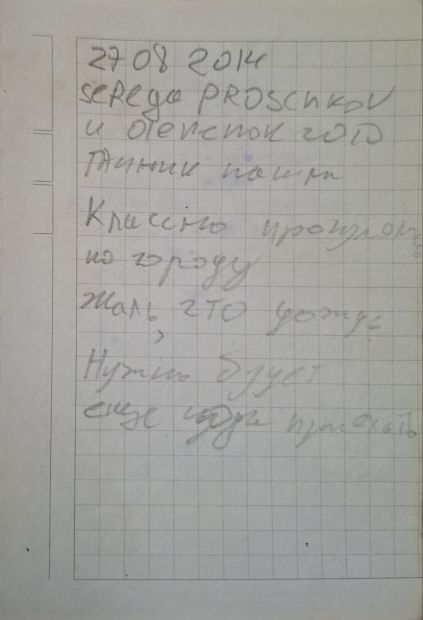 27 08 2014
SeRega PROSChKOV
и
Классно прогулялись
по городу
Жаль, что дождь
Нужно будет
еще сюда приехать